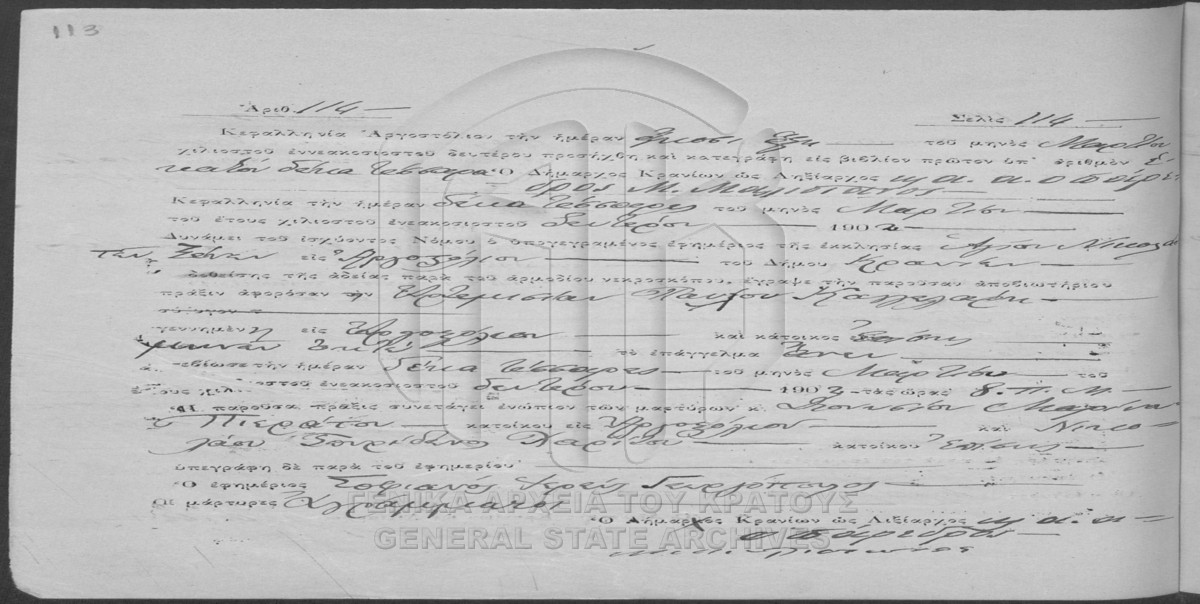 113
Ἀριθ. 114 —
Σελὶς 114 —
Κεφαλληνία Ἀργοστόλιον τὴν ἡμέραν εἴκοσι ἕξη — τοῦ μηνὸς Μαρτίου
χιλιοστοῦ ἐννεακοσιοστοῦ δευτέρου προσήχθη καὶ κατεγράφη εἰς βιβλίον πρῶτον ὑπ' ἀριθμὸν ἑ-
κατὸν δέκα τέσσαρα Ὁ Δήμαρχος Κρανίων ὡς Ληξίαρχος κ. α. α. ὁ πάρε-
δρος Μ.
Κεφαλληνία τὴν ἡμέραν δέκα τέσσαρες τοῦ μηνὸς Μαρτίου —
τοῦ ἔτους χιλιοστοῦ ἐνακοσιοστοῦ δευτέρου — 1902 —
Δυνάμει τοῦ ἰσχύοντος Νόμου ὁ ὑπογεγραμένος ἐφημέριος τῆς ἐκκλησίας Ἁγίου Νικολάου
τῶν Ξένων εἰς Ἀργοστόλιον — τοῦ Δήμου Κρανίων —
δοθείσης τῆς ἀδείας παρὰ τοῦ ἁρμοδίου νεκροσκόπου, ἔγραψε τὴν παροῦσαν ἀποβιωτήριον
πρᾶξιν ἀφορῶσαν τὴν Ἀρτεμισίαν Παύλου
γεννημένη εἰς Ἀργοστόλιον — καὶ κάτοικος ἐπίσης
μηνῶν — τὸ ἐπάγγελμα ἄνευ —
ἀπεβίωσε τὴν ἡμέραν δέκα τέσσαρες — τοῦ μηνὸς Μαρτίου — τοῦ
ἔτους χιλιοστοῦ ἐνεακοσιοστοῦ δευτέρου — 1902 — τὰς ὥρας 8. π. μ. —
Ἡ παροῦσα πρᾶξις συνετάγει ἐνώπιον τῶν μαρτύρων κ. Διονυσίου
Πιεράτου — κατοίκου εἰς Ἀργοστόλιον — καὶ Νικο-
λάου Σπυρίδωνος — κατοίκου ἐπίσης —
ὑπεγράφη δὲ παρὰ τοῦ ἐφημερίου
Ὁ ἐφημέριος Σοφιανὸς Ἱερεὺς Γεωργόπουλος —
Οἱ μάρτυρες Ἀγράμματοι
Ὁ Δήμαρχος Κρανίων ὡς Λιξίαρχος κ. α. α.
ὁ πάρεδρος —
ΓΕΝΙΚΑ ΑΡΧΕΙΑ ΤΟΥ ΚΡΑΤΟΥΣ
GENERAL STATE ARCHIVES